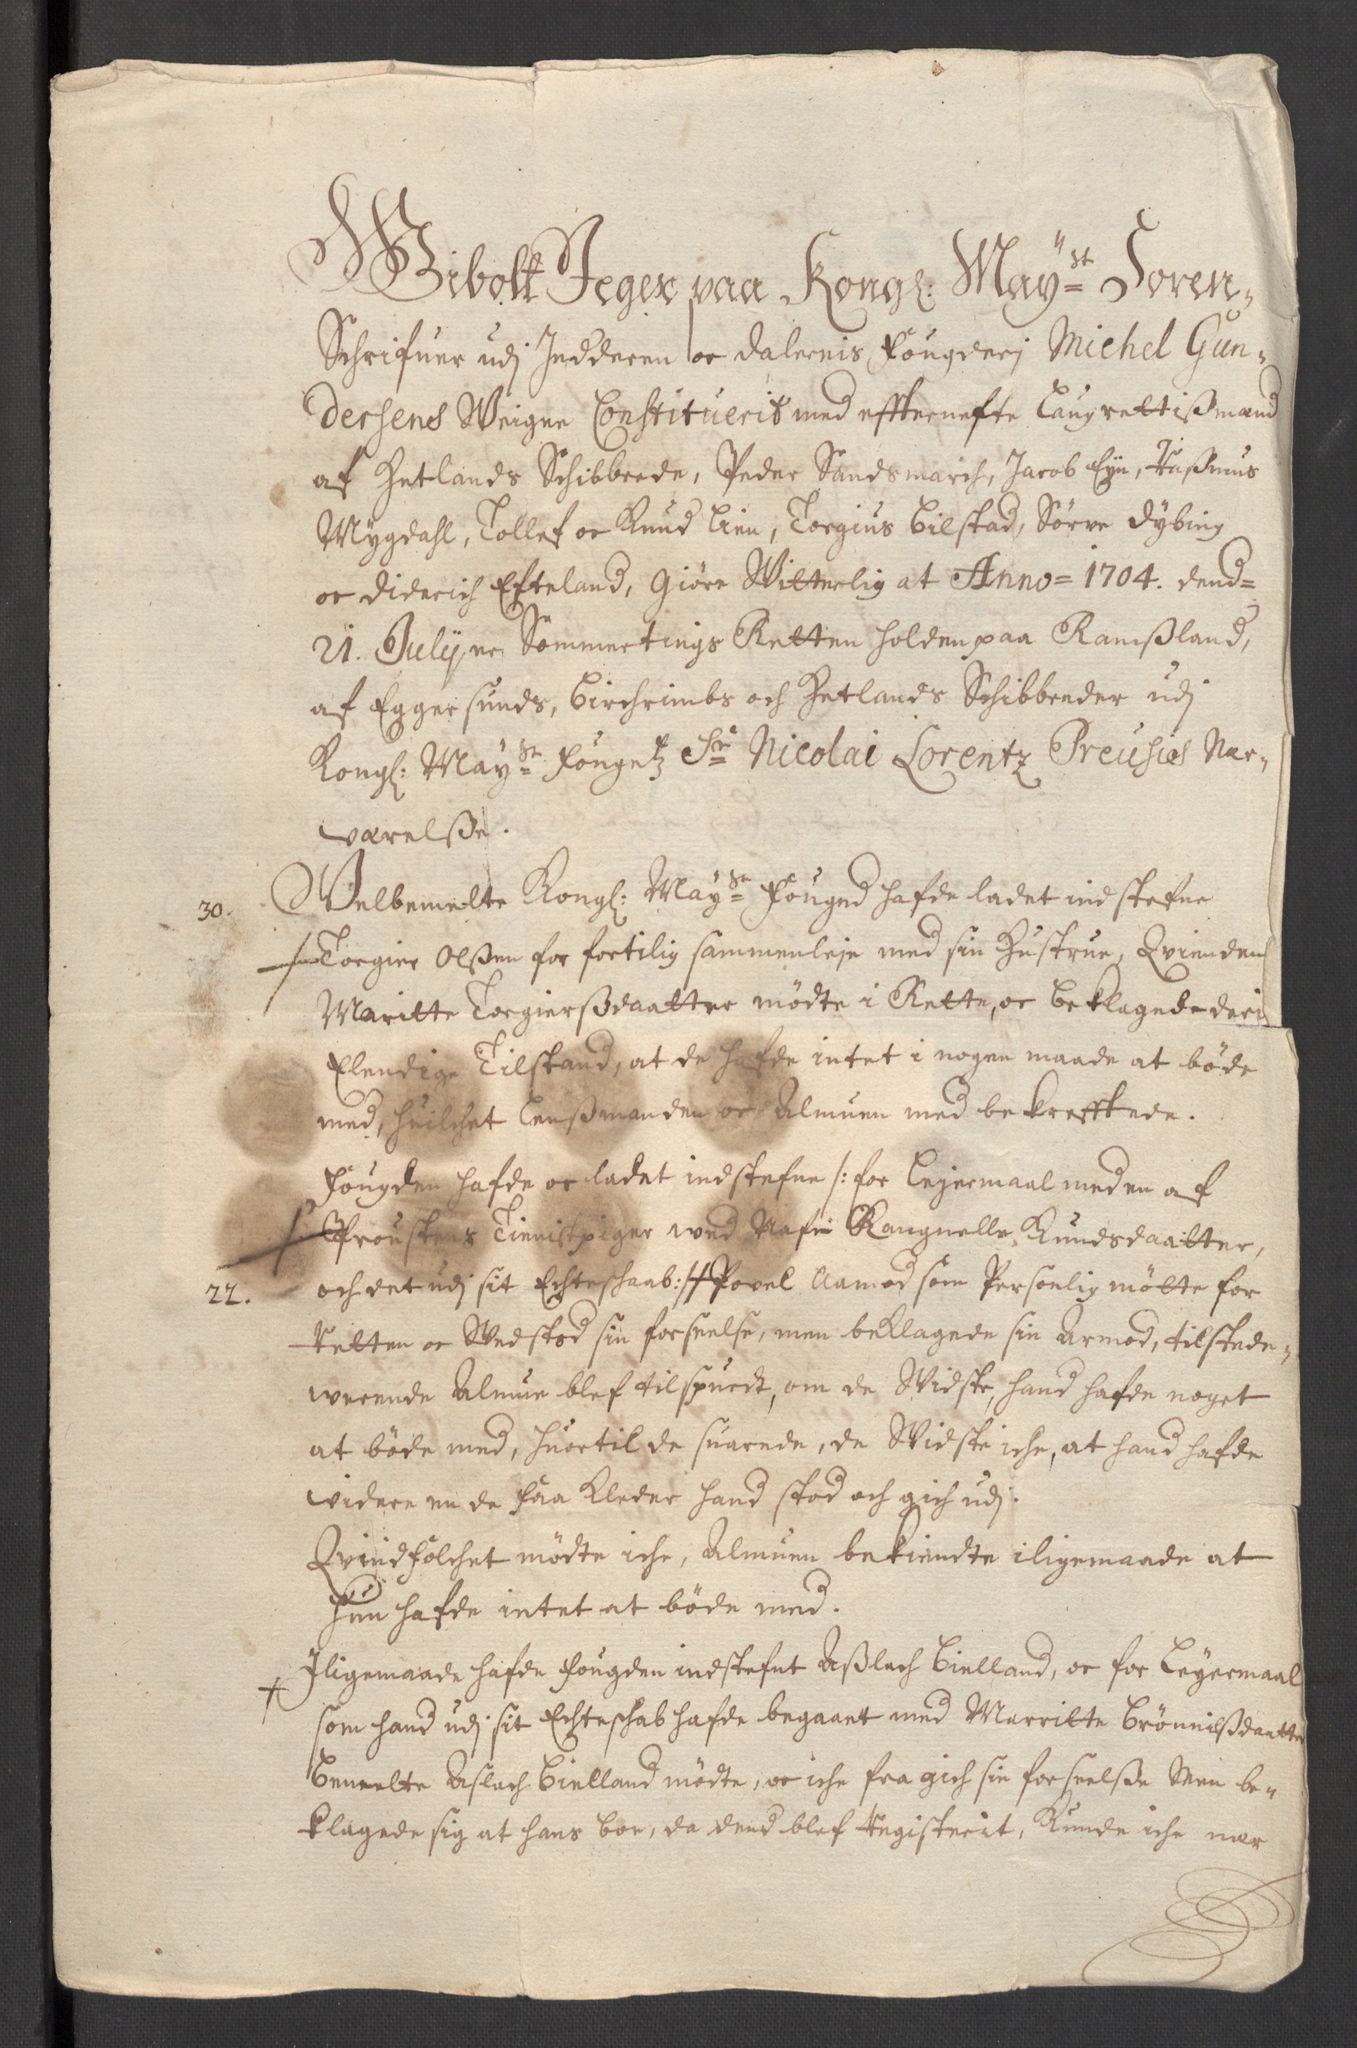 Wibolt Jeger paa Kongl: May:st Soren-
Schrifuer udj Jedderen oc Dalernis Fougderj Michel Gun-
dersens Weigne Constituerit med effternefte Laugrettißmænd
af Hetlands Schibbrede, Peder Sandsmarch, Jacob Eyie, Raßmus
Mygdahl, Tollef oc Knud Lien, Torgius Bilstad, Sørve Dybing
oc Diderich Efteland, Giøre Witterlig at Anno= 1704. dend=
21. Julij, er Sommertings Retten holden paa Ramßland,
af Eggersunds, Birchrimbs och Hetlands Schibbreder udj
Kongl: May:st Fougetz Sr: Nicolai Lorentz Preusies Nær-
værelße.
30. Welbemelte Kongl: May:st Fouged hafde ladet indstefne
Torgier Olßen for fortilig sammenleje med sin Hustrue, Qvinden
Maritte Torgierßdaatter mødte i Rette, oc beklagede deris
Elendige Tilstand, at de hafde intet i nogen maade at bøde
med, huilchet Lenßmanden oc Almuen med bekrefftede.
Fougden hafde oc ladet indstefne /: for Lejermaal med en af
Proustens Tienistpiger wed Nafn Rangnelle Knudsdaatter,
22. och det udj sit Echteschaab :/ Povel Aamod som Personlig mötte for
Retten oc Wedstod sin forseelse, men beklagede sin Armod, tilstede-
werende Almue blef tilspurdt, om de Widste, hand hafde noget
at bøde med, huortil de suarede, de Widste iche, at hand hafde
widere en de faa Kleder hand stod och gich udj.
Qvindfolchet mødte iche, Almuen bekiendte iligemaade at
hun hafde intet at bøde med.
Iligemaade hafde Fougden indstefnt Aßlach Bielland, oc for Leyermaal
som hand udj sit Echteschab hafde begaaet med Marritte Brönnilßdaatter
Bemelte Aslach Bielland mødte, oc iche fra gich sin forseelße Men be-
klagede sig at hans boe, da dend blef Registerit, Kunde iche mer